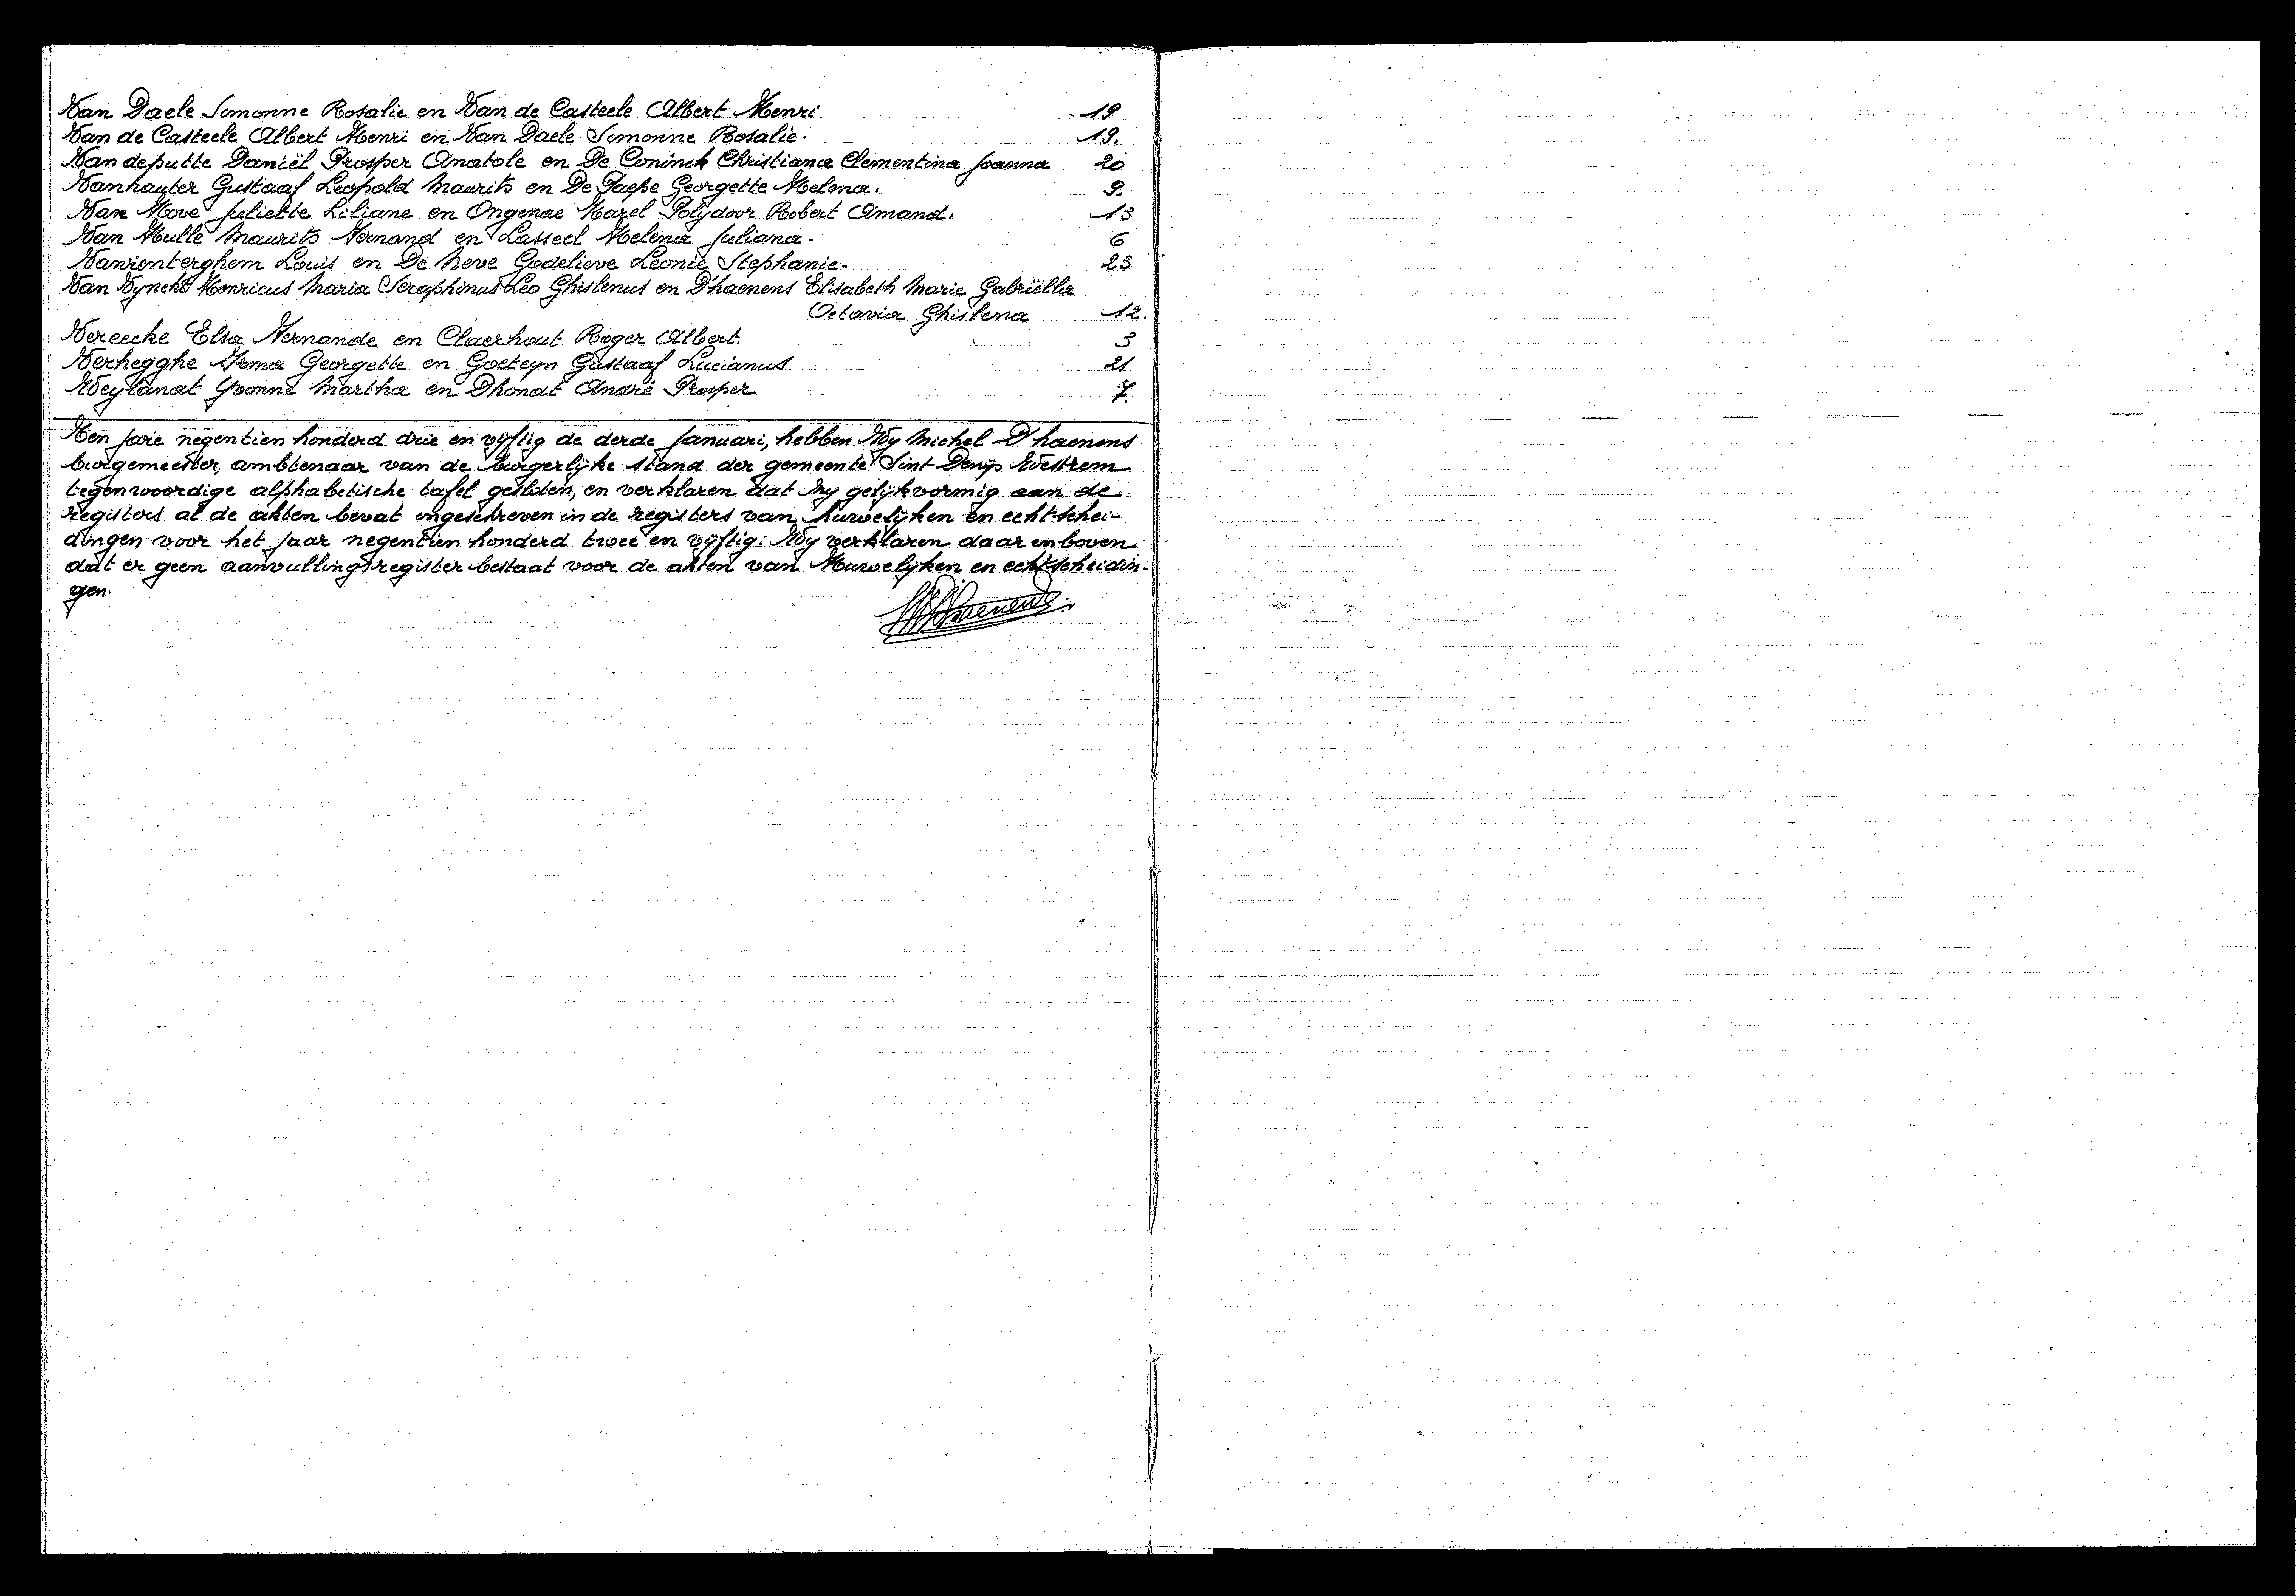 Van Daele Simonne Rosalie en Van de Casteele Albert Henri 19
Van de Casteele Albert Henri en Van Daele Simonne Rosalie. 19.
Vandeputte Daniël Prosper Anatole en De Coninck Christiana Clementina Joanna 20
Vanhauter Gustaaf Leopold Maurits en De Paepe Georgette Helena. 9.
Van Hove Juliette Liliane en Ongenae Karel Polydoor Robert Amand. 13
Van Hulle Maurits Fernand en Lasseel Helena Juliana. 6
Vanrenterghem Louis en De Neve Godelieve Leonie Stephanie. 23
Van Vynckt Henricus Maria Seraphinus Leo Ghislenus en D'haenens Elisabeth Marie Gabriëlla
Octavia Ghislena 12.
Vereecke Elsa Fernande en Claerhout Roger Albert. 3
Verhegghe Irma Georgette en Goeteyn Gustaaf Lucianus 21
Weylandt Yvonne Martha en Dhondt André Prosper 7.
Ten jare negentien honderd drie en vijftig de derde Januari, hebben Wy Michel D'haenens
burgemeester, ambtenaar van de burgerlijke stand der gemeente Sint-Denijs Westrem
tegenwoordige alphabetische tafel gesloten, en verklaren dat zy gelijkvormig aan de
registers al de akten bevat ingeschreven in de registers van huwelijken en echt-schei-
dingen voor het jaar negentien honderd twee en vijftig. Wy verklaren daar en boven
dat er geen aanvullingsregister bestaat voor de akten van Huwelijken en echtscheidin-
gen.
M D'haenens.